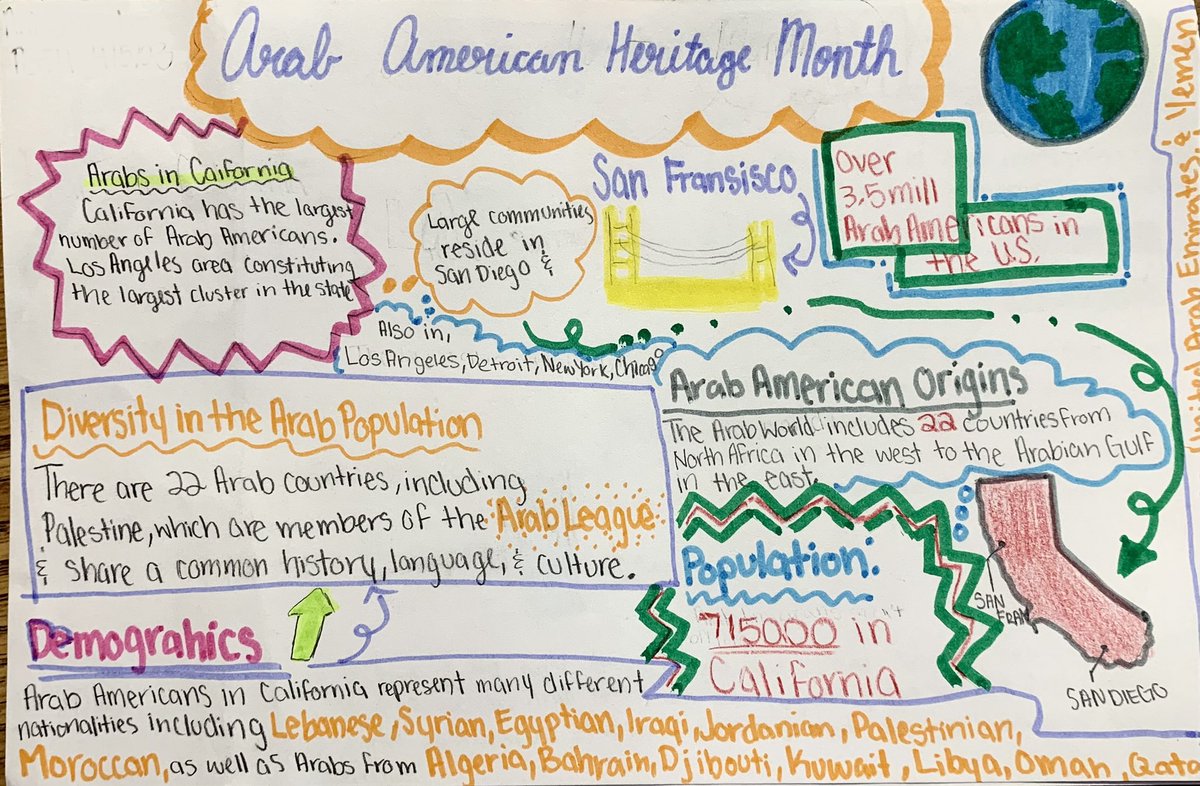 Arab American Heritage Month
Arabs in Caifornia
California has the largest
number of Arab Americans.
Los Angeles area constituting
the largest cluster in the state
Large communities
reside in
San Diego &
San Fransisco
Over
3.5 mill
Arab Americans in
the U.S.
Also in,
Los Angeles, Detroit, New York, Chicago
Diversity in the Arab Population
There are 22 Arab countries, including
Palestine, which are members of the Arab League
& share a common history, language, & culture.
Arab American Origins
The Arab World includes 22 countries from
North Africa in the west to the Arabian Gulf
in the east.
Population:
715000 in
California
SAN
FRAN
SAN DIEGO
Demograhics
Arab Americans in California represent many different
nationalities including Lebanese, Syrian, Egyptian, Iraqi, Jordanian, Palestinian,
Moroccan, as well as Arabs from Algeria, Bahrain, Djibouti, Kuwait, Libya, Oman, Qata
United Arab Emirates, & Yemen